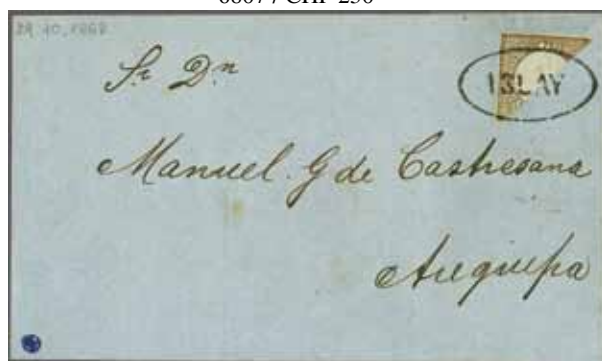 29.10.1868
Sr Dn
ISLAY
Manuel G de Castresana
Arequipa